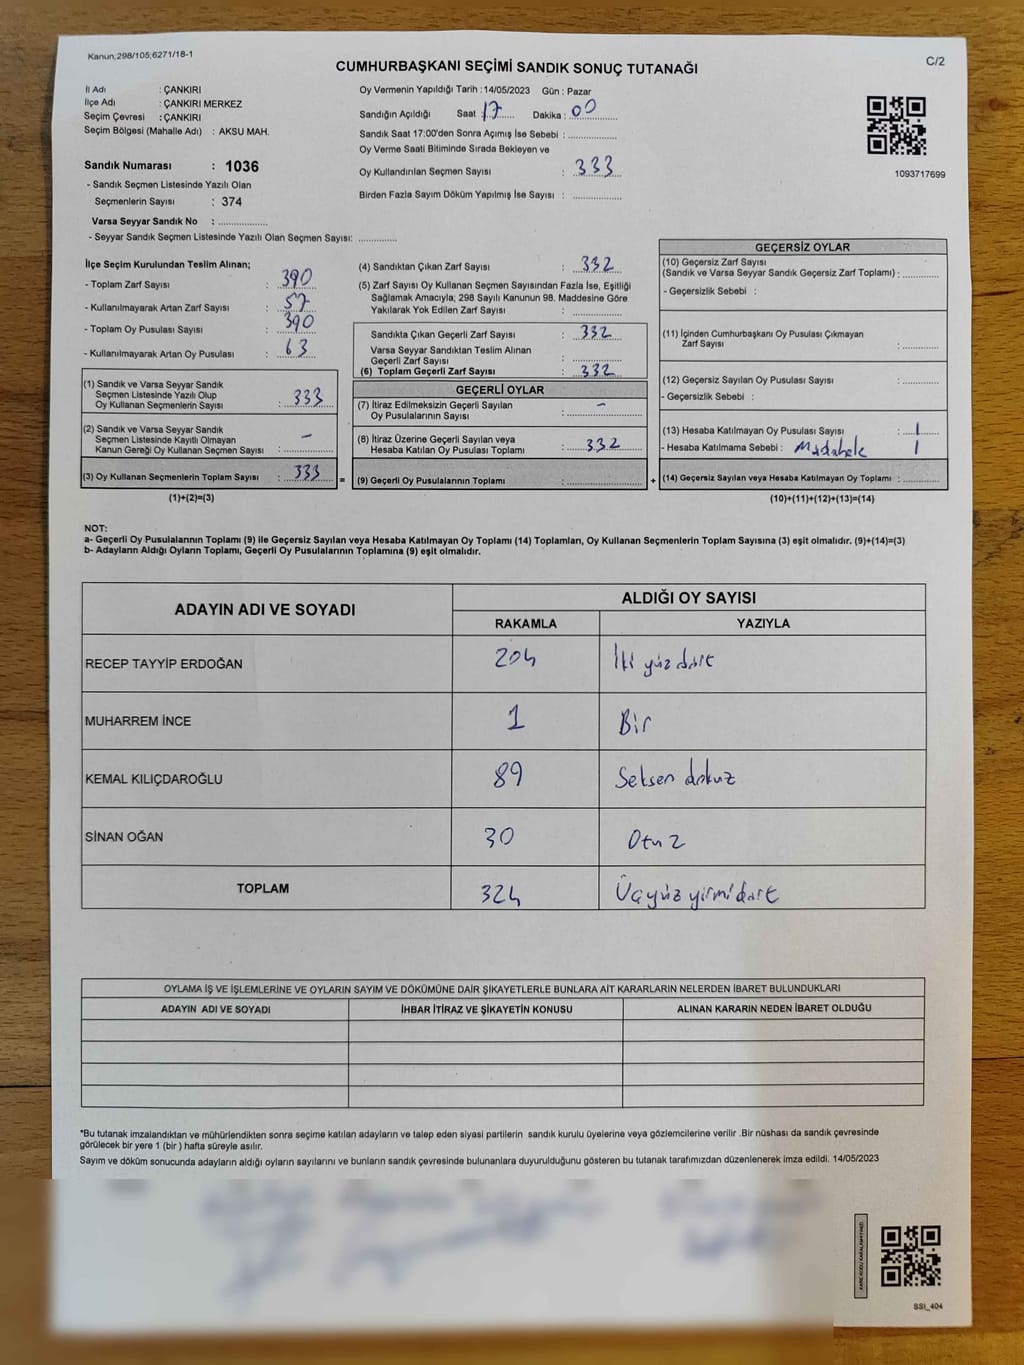 Kanun;298/105;6271/18-1
C/2
CUMHURBAŞKANI SEÇİMİ SANDIK SONUÇ TUTANAĞI
İl Adı : ÇANKIRI
İlçe Adı : ÇANKIRI MERKEZ
Seçim Çevresi : ÇANKIRI
Seçim Bölgesi (Mahalle Adı) : AKSU MAH.
Sandık Numarası : 1036
- Sandık Seçmen Listesinde Yazılı Olan
Seçmenlerin Sayısı : 374
Varsa Seyyar Sandık No : ..................
- Seyyar Sandık Seçmen Listesinde Yazılı Olan Seçmen Sayısı: ..............
Oy Vermenin Yapıldığı Tarih : 14/05/2023 Gün : Pazar
Sandığın Açıldığı Saat : 17 Dakika : 00
Sandık Saat 17:00'den Sonra Açımış İse Sebebi : ..................
Oy Verme Saati Bitiminde Sırada Bekleyen ve
Oy Kullandırılan Seçmen Sayısı : 333
Birden Fazla Sayım Döküm Yapılmış İse Sayısı : ..................
1093717699
İlçe Seçim Kurulundan Teslim Alınan;
- Toplam Zarf Sayısı : 390
- Kullanılmayarak Artan Zarf Sayısı : 57
- Toplam Oy Pusulası Sayısı : 390
- Kullanılmayarak Artan Oy Pusulası : 63
(1) Sandık ve Varsa Seyyar Sandık
Seçmen Listesinde Yazılı Olup
Oy Kullanan Seçmenlerin Sayısı : 333
(2) Sandık ve Varsa Seyyar Sandık
Seçmen Listesinde Kayıtlı Olmayan
Kanun Gereği Oy Kullanan Seçmen Sayısı : -
(3) Oy Kullanan Seçmenlerin Toplam Sayısı : 333
(1)+(2)=(3)
(4) Sandıktan Çıkan Zarf Sayısı : 332
(5) Zarf Sayısı Oy Kullanan Seçmen Sayısından Fazla İse, Eşitliği
Sağlamak Amacıyla; 298 Sayılı Kanunun 98. Maddesine Göre
Yakılarak Yok Edilen Zarf Sayısı : ..................
Sandıkta Çıkan Geçerli Zarf Sayısı : 332
Varsa Seyyar Sandıktan Teslim Alınan
Geçerli Zarf Sayısı : ..................
(6) Toplam Geçerli Zarf Sayısı : 332
GEÇERLİ OYLAR
(7) İtiraz Edilmeksizin Geçerli Sayılan
Oy Pusulalarının Sayısı : -
(8) İtiraz Üzerine Geçerli Sayılan veya
Hesaba Katılan Oy Pusulası Toplamı : 332
= (9) Geçerli Oy Pusulalarının Toplamı : .................. +
GEÇERSİZ OYLAR
(10) Geçersiz Zarf Sayısı
(Sandık ve Varsa Seyyar Sandık Geçersiz Zarf Toplamı) : ............
- Geçersizlik Sebebi :
(11) İçinden Cumhurbaşkanı Oy Pusulası Çıkmayan
Zarf Sayısı : ............
(12) Geçersiz Sayılan Oy Pusulası Sayısı : ............
- Geçersizlik Sebebi :
(13) Hesaba Katılmayan Oy Pusulası Sayısı : 1
- Hesaba Katılmama Sebebi : Müdahele 1
(14) Geçersiz Sayılan veya Hesaba Katılmayan Oy Toplamı : ............
(10)+(11)+(12)+(13)=(14)
NOT:
a- Geçerli Oy Pusulalarının Toplamı (9) ile Geçersiz Sayılan veya Hesaba Katılmayan Oy Toplamı (14) Toplamları, Oy Kullanan Seçmenlerin Toplam Sayısına (3) eşit olmalıdır. (9)+(14)=(3)
b- Adayların Aldığı Oyların Toplamı, Geçerli Oy Pusulalarının Toplamına (9) eşit olmalıdır.
ADAYIN ADI VE SOYADI ALDIĞI OY SAYISI
RAKAMLA YAZIYLA
RECEP TAYYİP ERDOĞAN 204 İki yüz dört
MUHARREM İNCE 1 Bir
KEMAL KILIÇDAROĞLU 89 Seksen dokuz
SİNAN OĞAN 30 Otuz
TOPLAM 324 Üçyüz yirmi dört
OYLAMA İŞ VE İŞLEMLERİNE VE OYLARIN SAYIM VE DÖKÜMÜNE DAİR ŞİKAYETLERLE BUNLARA AİT KARARLARIN NELERDEN İBARET BULUNDUKLARI
ADAYIN ADI VE SOYADI İHBAR İTİRAZ VE ŞİKAYETİN KONUSU ALINAN KARARIN NEDEN İBARET OLDUĞU
*Bu tutanak imzalandıktan ve mühürlendikten sonra seçime katılan adayların ve talep eden siyasi partilerin sandık kurulu üyelerine veya gözlemcilerine verilir .Bir nüshası da sandık çevresinde
görülecek bir yere 1 (bir ) hafta süreyle asılır.
Sayım ve döküm sonucunda adayların aldığı oyların sayılarını ve bunların sandık çevresinde bulunanlara duyurulduğunu gösteren bu tutanak tarafımızdan düzenlenerek imza edildi. 14/05/2023
SSI_404